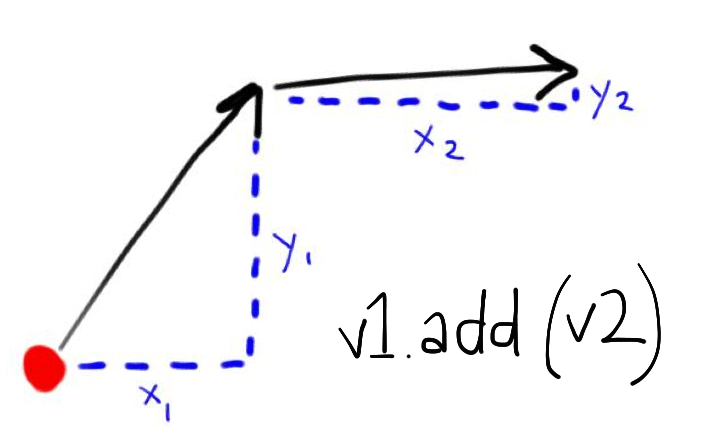 y₂
x₂
y₁
v1.add(v2)
x₁